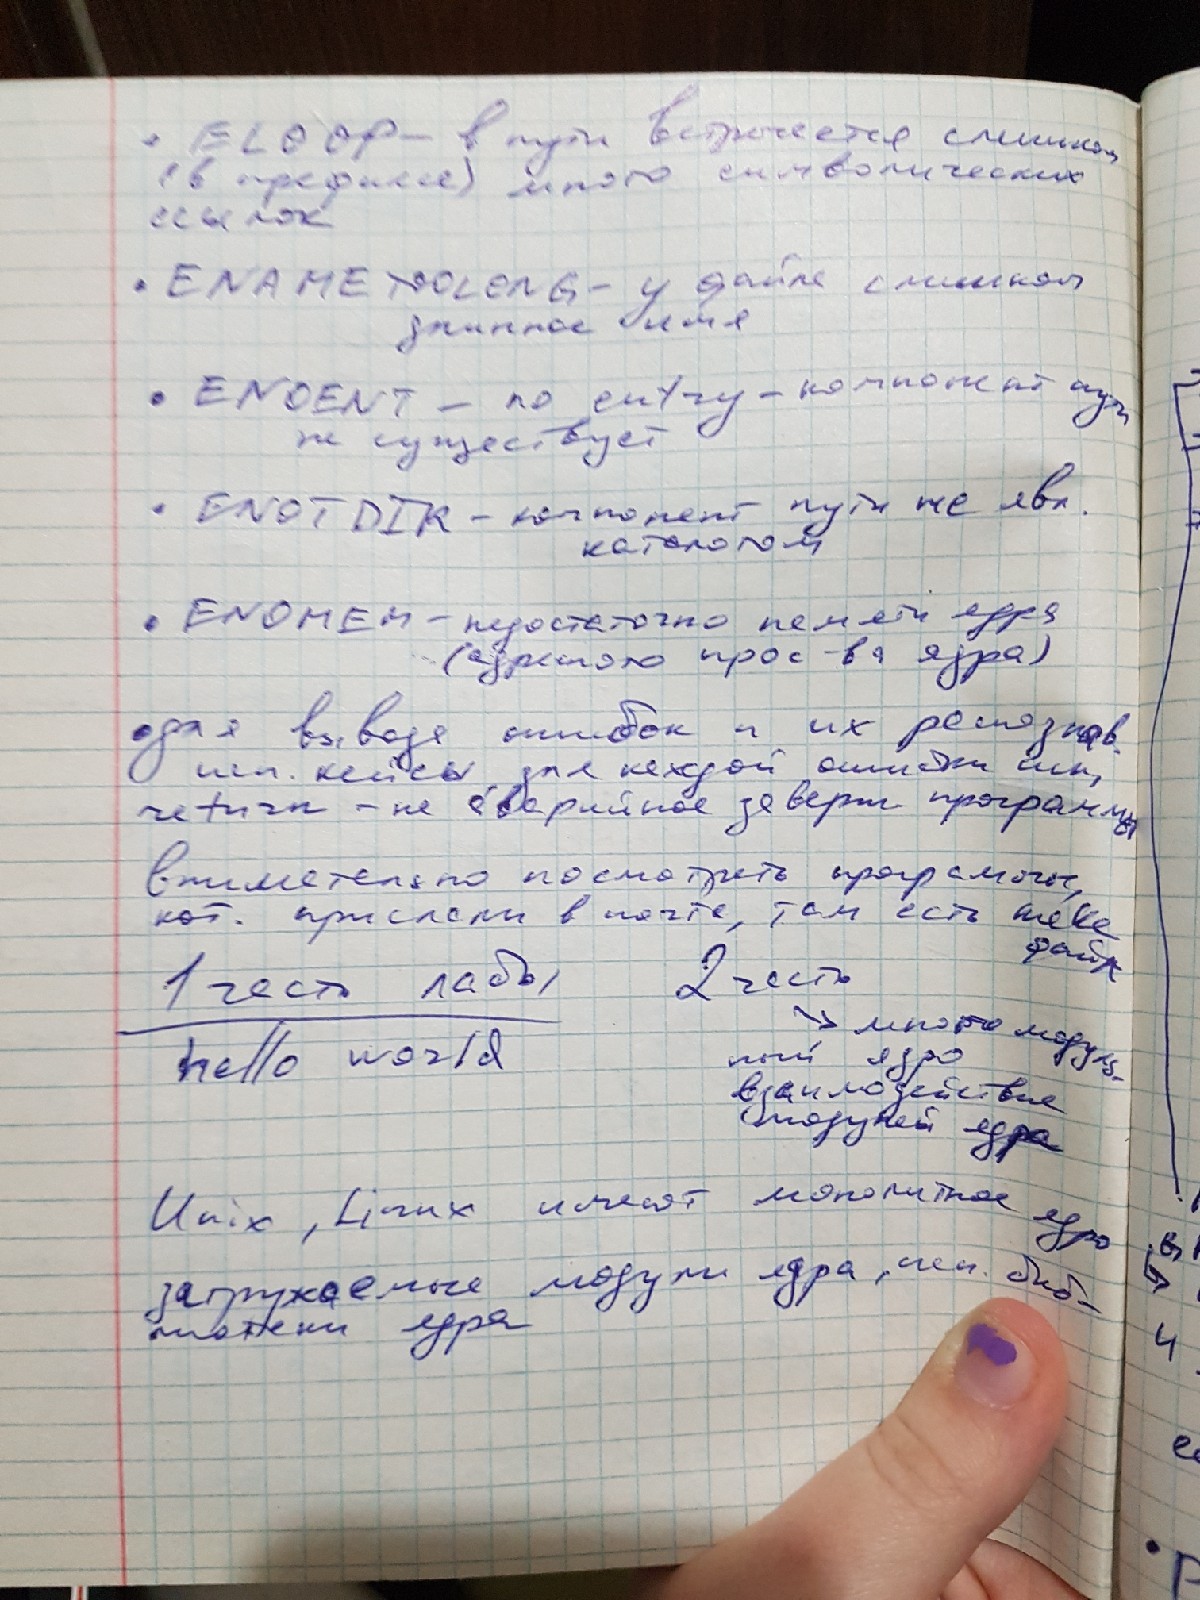 • ELOOP – в пути встречается слишком
(в префиксе) много символических
ссылок
• ENAMETOOLONG – у файла слишком
длинное имя
• ENOENT – no entry – компонент пути
не существует
• ENOTDIR – компонент пути не явл.
каталогом
• ENOMEM – недостаточно памяти ядра
(адресного прос-ва ядра)
• для вывода ошибок и их распознав.
исп. кейсы для каждой ошибки
return – не аварийное заверш программы
внимательно посмотреть программы,
кот. прислали в почте, там есть make
файл
1 часть лабы
2 часть
hello world
→ много модуль-
ный ядро
взаимодействие
модулей ядра
Unix, Linux имеют монолитное ядро
загружаемые модули ядра, исп. биб-
лиотеки ядра